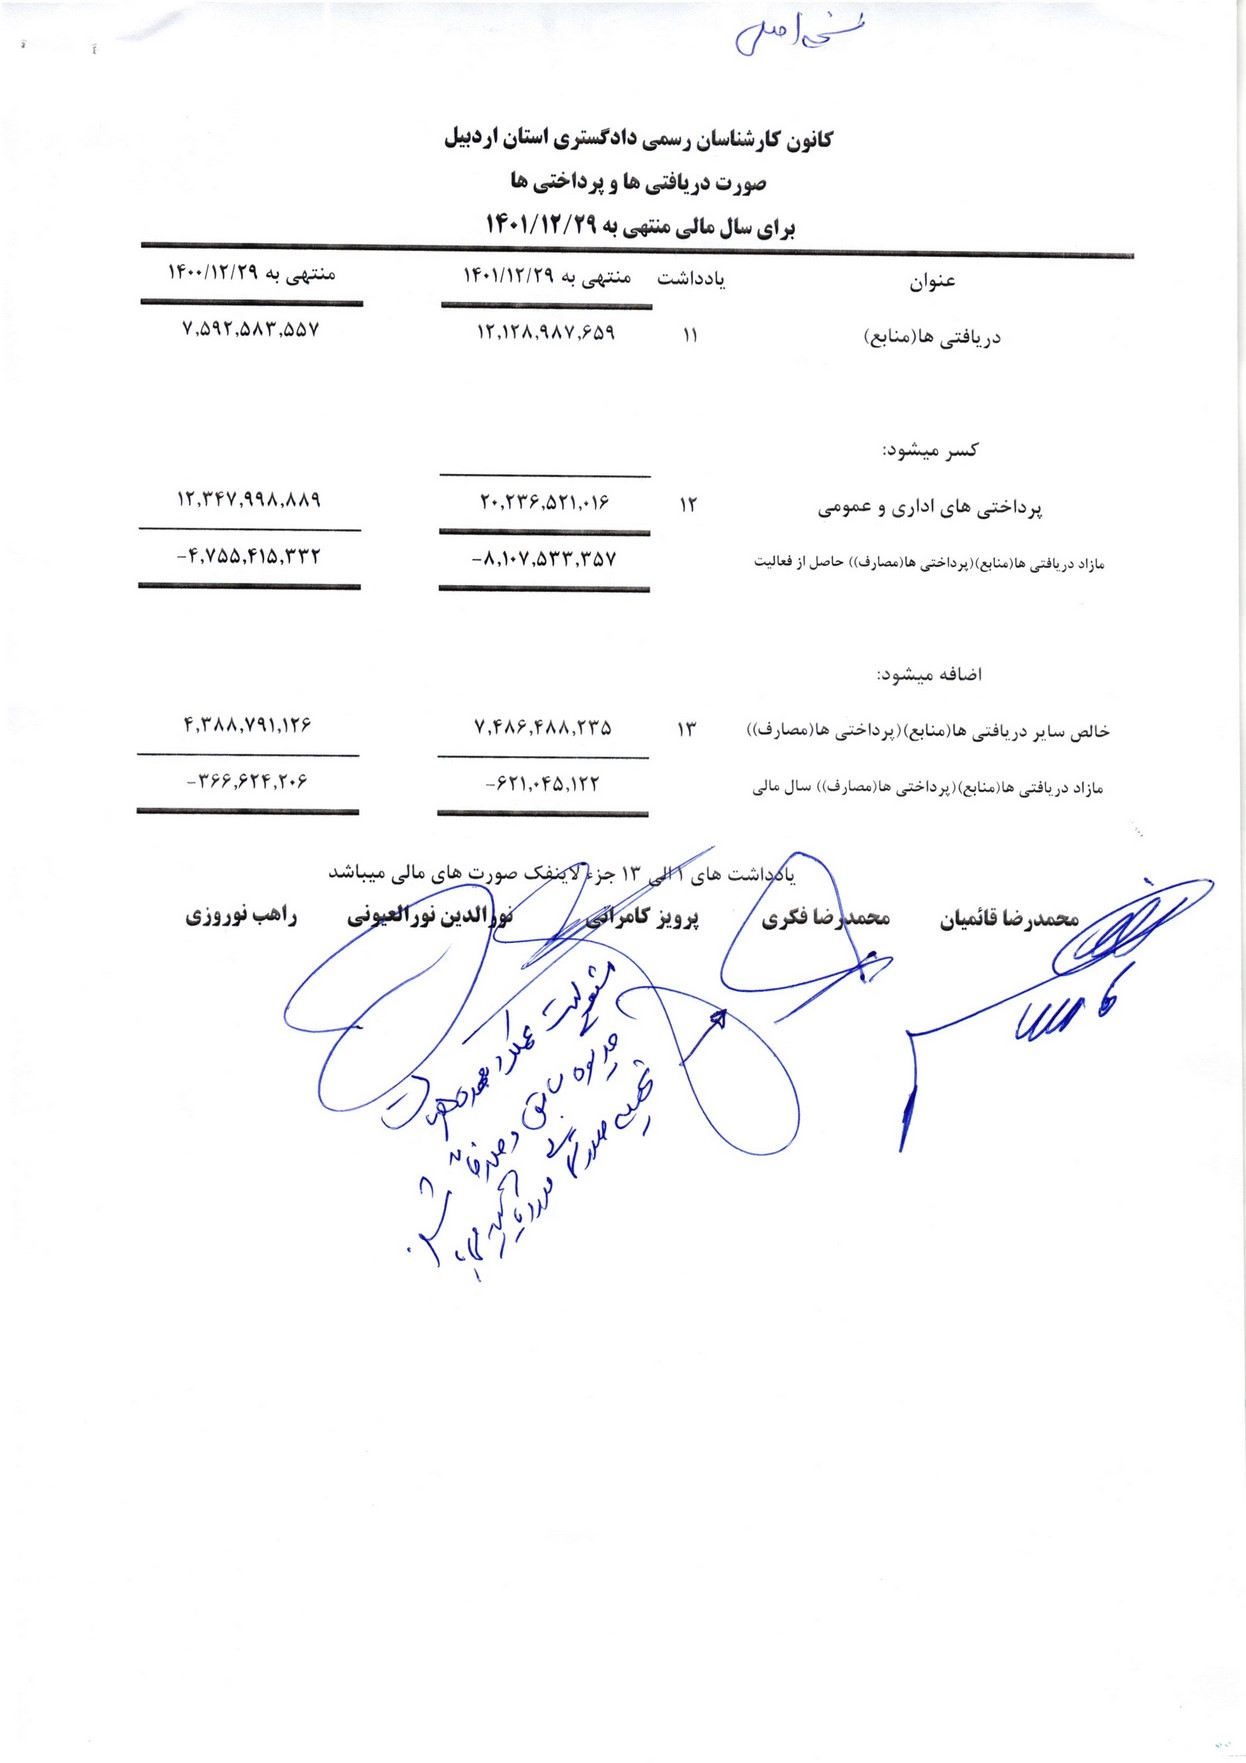 نسخه اصلی
کانون کارشناسان رسمی دادگستری استان اردبیل
صورت دریافتی ها و پرداختی ها
برای سال مالی منتهی به ۱۴۰۱/۱۲/۲۹
عنوان یادداشت منتهی به ۱۴۰۱/۱۲/۲۹ منتهی به ۱۴۰۰/۱۲/۲۹
دریافتی ها(منابع) ۱۱ ۱۲,۱۲۸,۹۸۷,۶۵۹ ۷,۵۹۲,۵۸۳,۵۵۷
کسر میشود:
پرداختی های اداری و عمومی ۱۲ ۲۰,۲۳۶,۵۲۱,۰۱۶ ۱۲,۳۴۷,۹۹۸,۸۸۹
مازاد دریافتی ها(منابع)(پرداختی ها(مصارف)) حاصل از فعالیت -۸,۱۰۷,۵۳۳,۳۵۷ -۴,۷۵۵,۴۱۵,۳۳۲
اضافه میشود:
خالص سایر دریافتی ها(منابع)(پرداختی ها(مصارف)) ۱۳ ۷,۴۸۶,۴۸۸,۲۳۵ ۴,۳۸۸,۷۹۱,۱۲۶
مازاد دریافتی ها(منابع)(پرداختی ها(مصارف)) سال مالی -۶۲۱,۰۴۵,۱۲۲ -۳۶۶,۶۲۴,۲۰۶
یادداشت های ۱ الی ۱۳ جزء لاینفک صورت های مالی میباشد
محمدرضا قائمیان محمدرضا فکری پرویز کامرانی نورالدین نورالعیونی راهب نوروزی